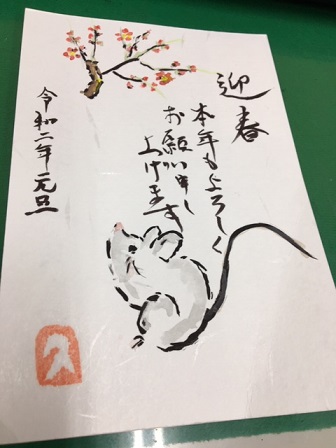 迎春
本年もよろしく
お願い申し
上げます
令和二年元旦
久